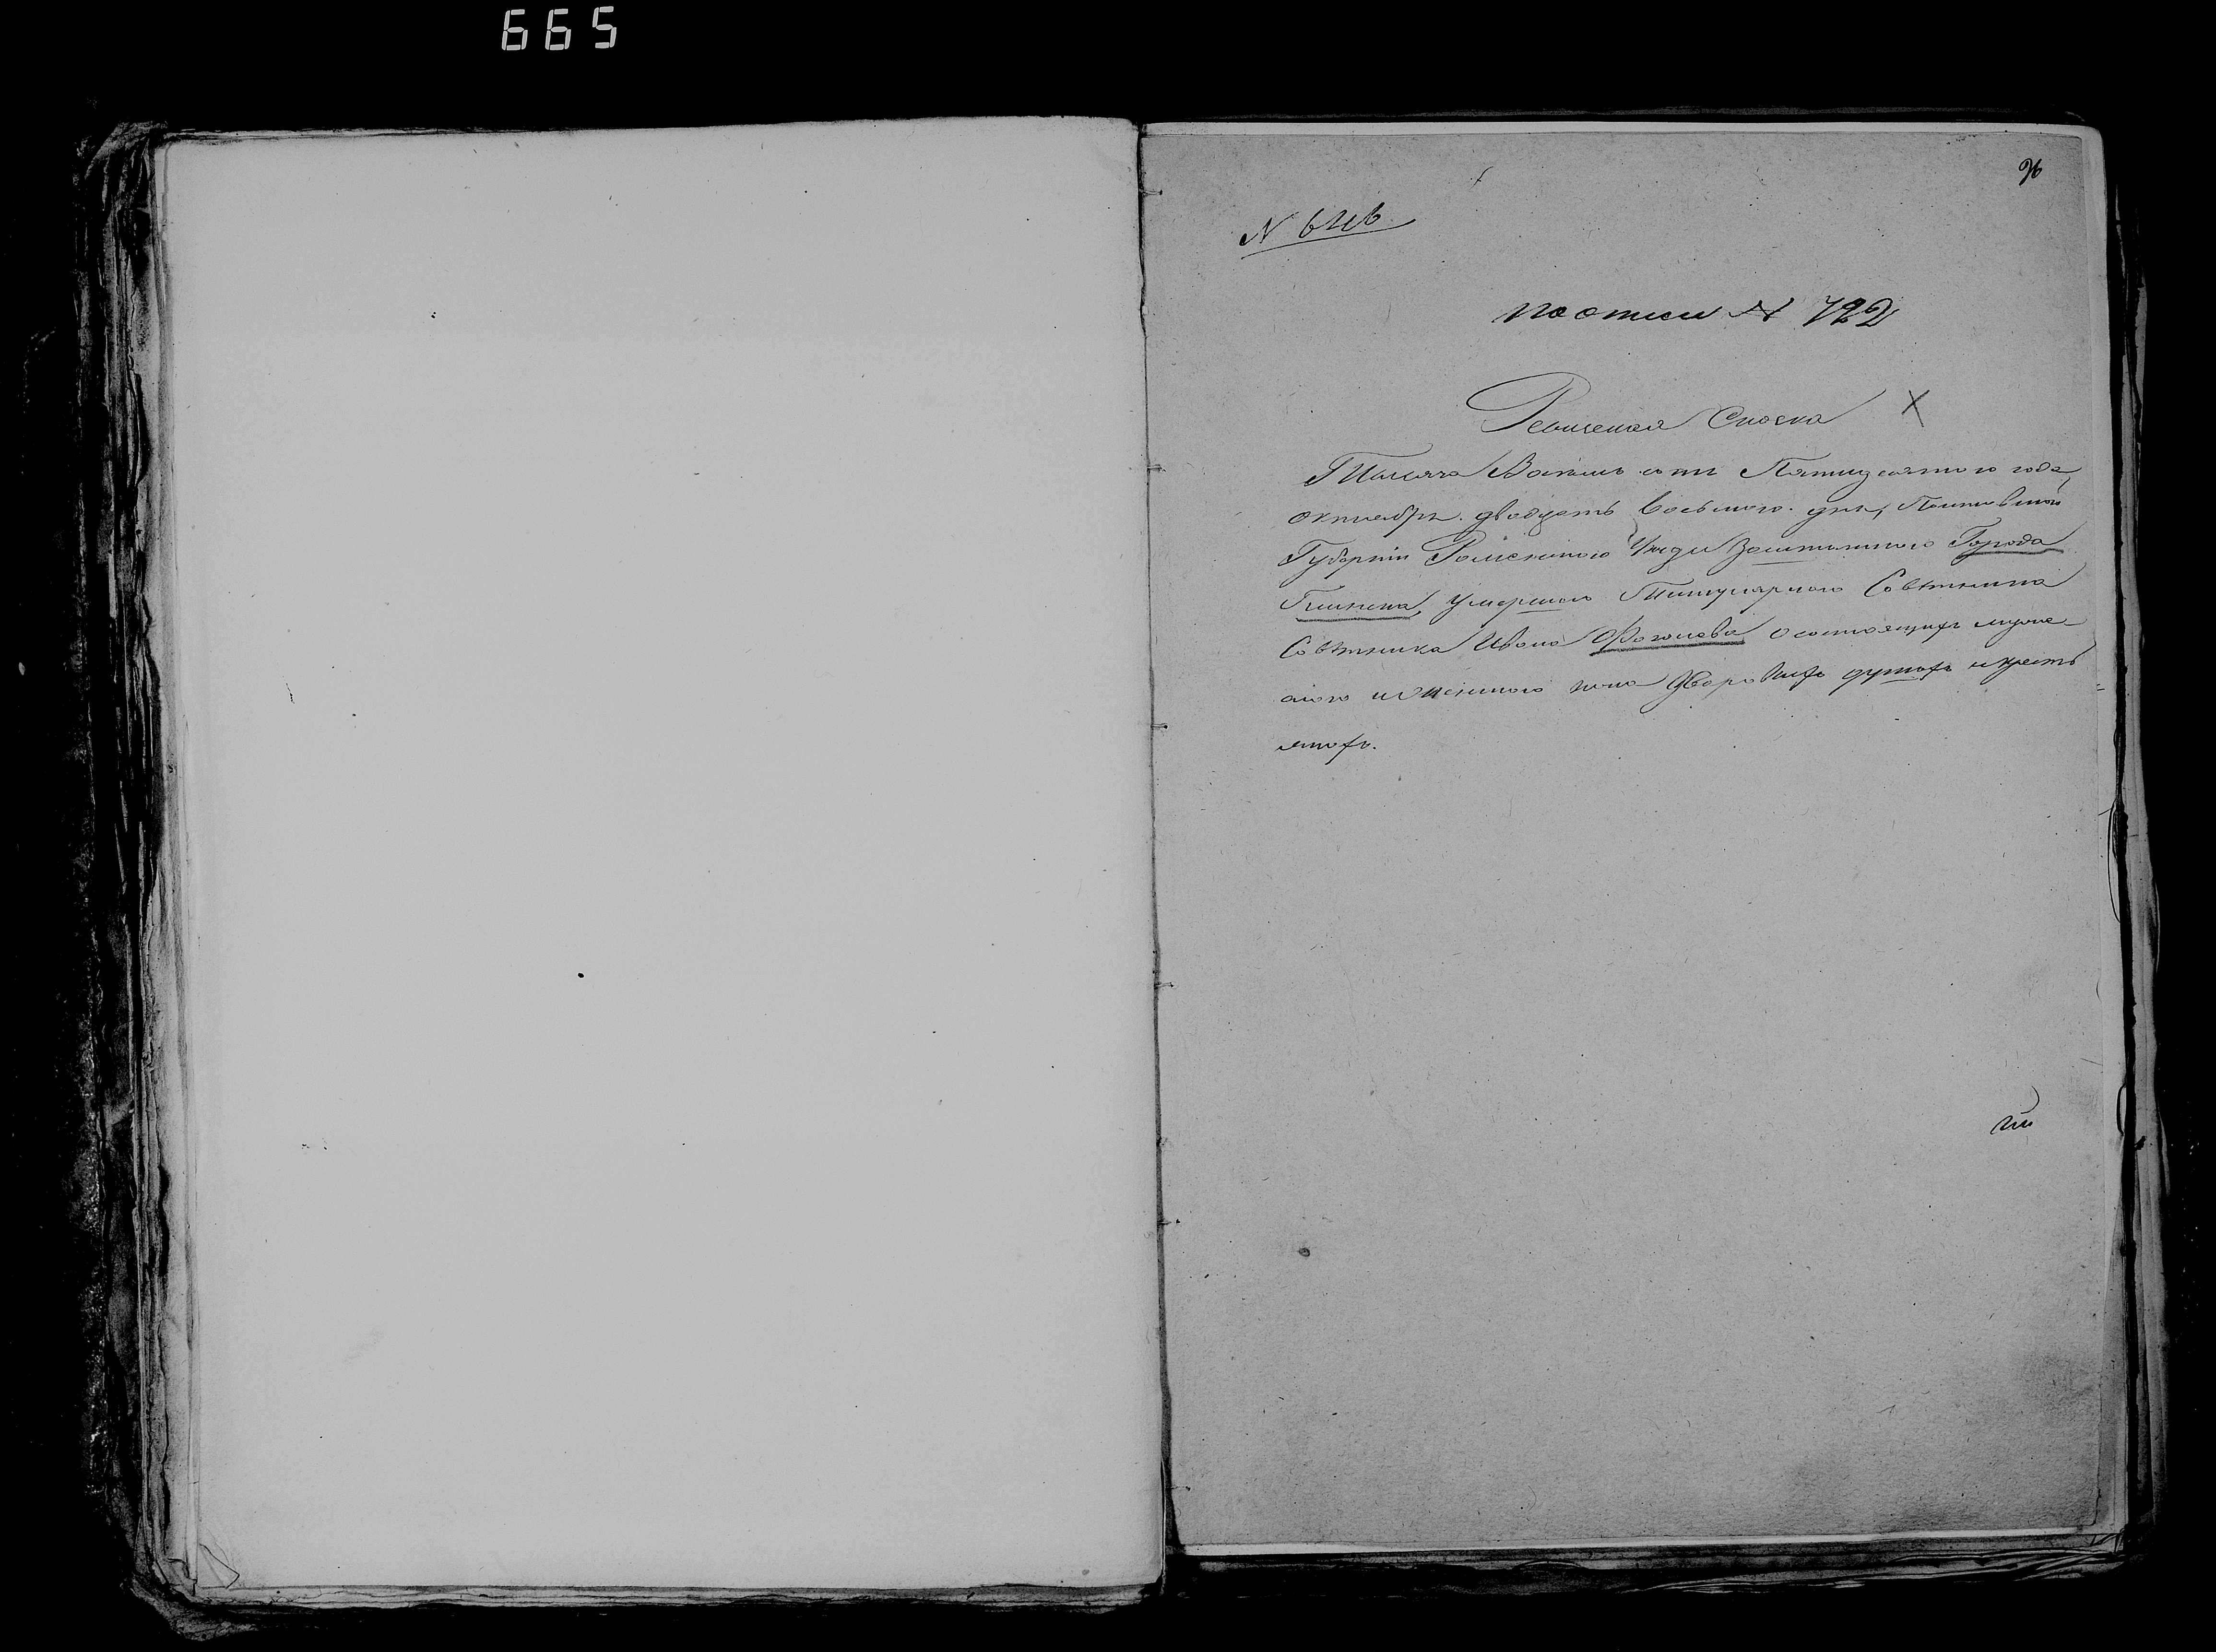 665
96
N 646
по описи N 722
Ревизская Сказка
Тысяча Восемь сотъ Пятидесятого года
октября двадцать восьмого дня, Полтавской
Губерніи Роменского Уезда Заштатного Города
Глинска, умершого Титулярного Советника
Советника Ивана о состоящихъ муже
ского и женского пола дворовыхъ людяхъ и кресть
янохъ.